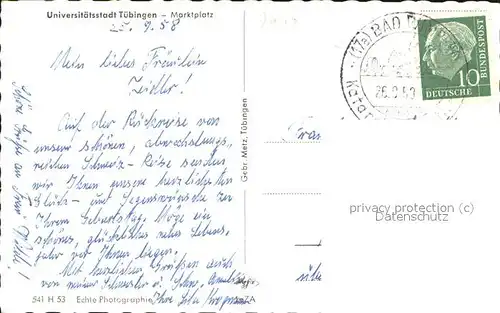 Universitätsstadt Tübingen – Marktplatz
25. 9. 58
Mein liebes Fräulein
Zeidler!
Auf der Rückreise von
unserer schönen, abwechslungs-
reichen Schweiz-Reise senden
wir Ihnen unsere herzlichsten
Glück- und Segenswünsche zu
Ihrem Geburtstag. Möge ein
schönes, glückliches neues Lebens-
jahr vor Ihnen liegen.
Mit herzlichen Grüßen auch
von meiner Schwester u.
Ihre
Schöne Grüße an Frau
541 H 53 Echte Photographie
Gebr. Metz, Tübingen
(17a) BAD
10
DEUTSCHE
BUNDESPOST
privacy protection (c)
Datenschutz